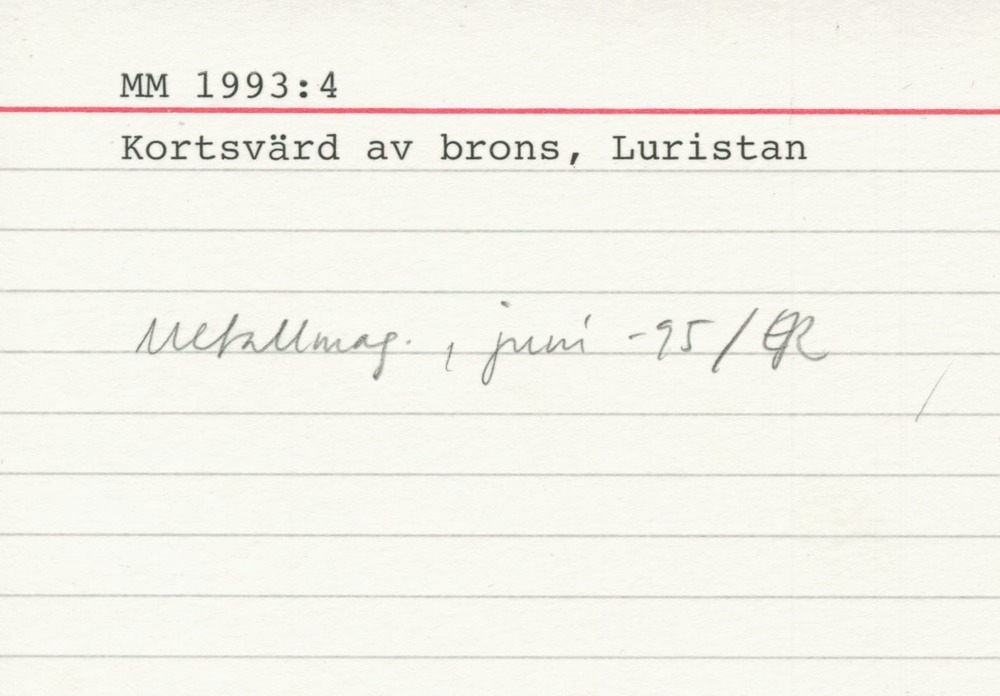 MM 1993:4
Kortsvärd av brons, Luristan
Metallmag., juni -95/ER